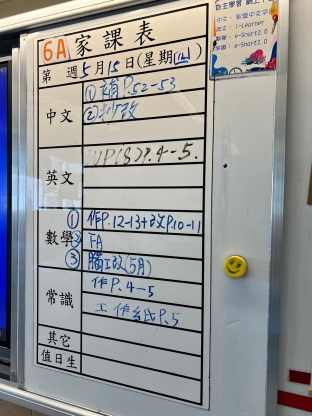 6A 家課表
第 週 5月15日(星期四)
中文
① 補P.52-53
② 抄改
英文
WP(C8)P.4-5.
數學
① 作P.12-13+改P.10-11
② FA
③ 腦工改(5月)
常識
作P.4-5
工作紙P.5
其它
值日生
自主學習 網上平
中文:
英文: i-Learner
數學: e-Smart2.0
常識: e-Smart2.0